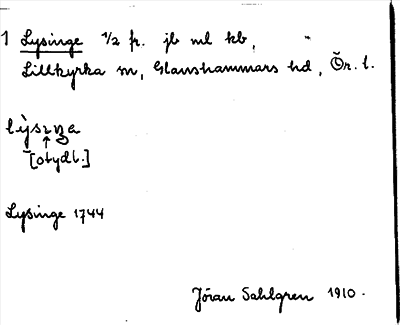 1 Lysinge 1/2 fr. jb ml kb,
Lillkyrka sn, Glanshammars hd, Ör. l.
[otydl.]
Lysinge 1744
Jöran Sahlgren 1910.